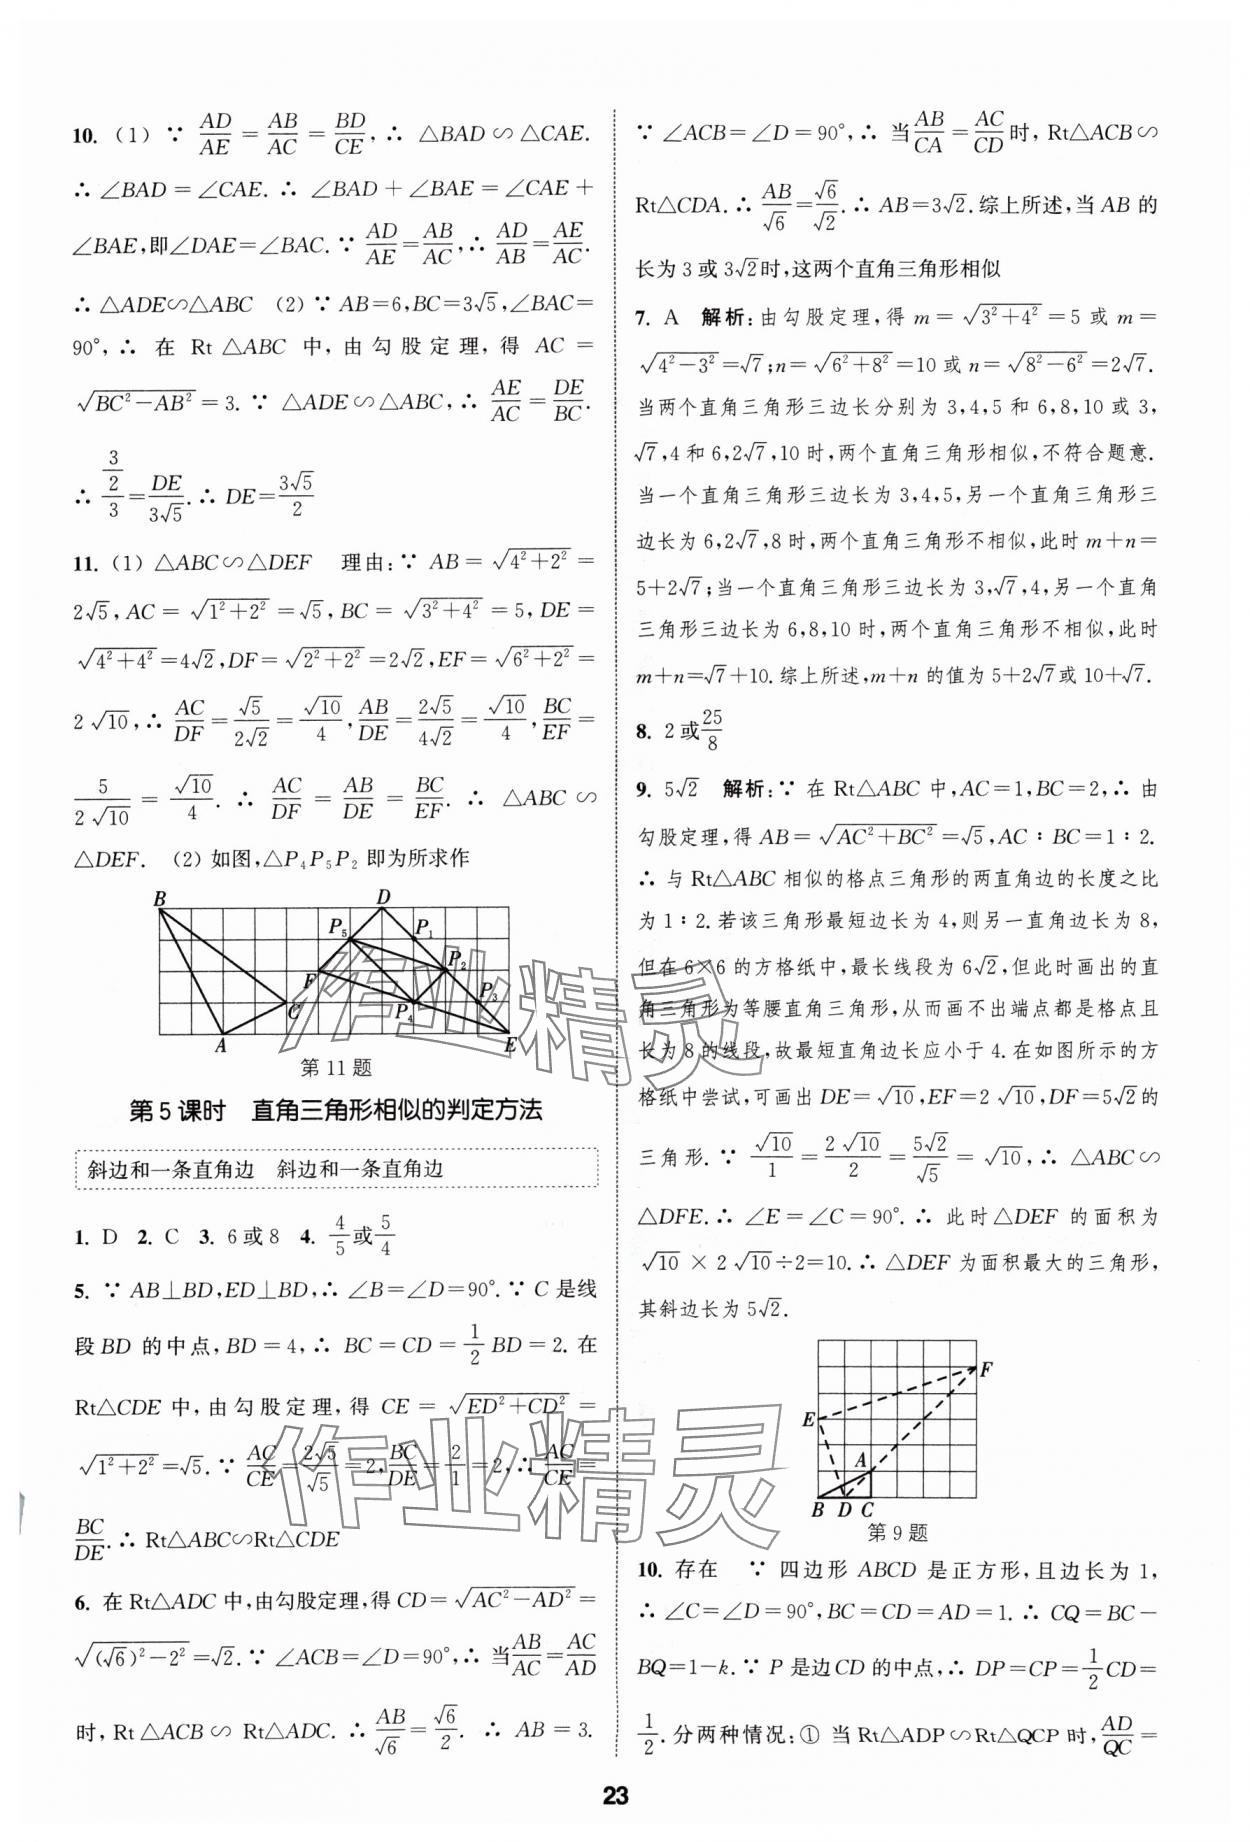 10. (1) ∵ AD/AE = AB/AC = BD/CE, ∴ △BAD∽△CAE.
∴ ∠BAD=∠CAE. ∴ ∠BAD+∠BAE=∠CAE+
∠BAE,即∠DAE=∠BAC. ∵ AD/AE=AB/AC,∴ AD/AB=AE/AC.
∴ △ADE∽△ABC (2) ∵ AB=6,BC=3√5,∠BAC=
90°,∴ 在 Rt△ABC 中,由勾股定理,得 AC=
√(BC²-AB²)=3. ∵ △ADE∽△ABC,∴ AE/AC=DE/BC.
∴ (3/2)/3=DE/(3√5). ∴ DE=3√5/2
11. (1) △ABC∽△DEF 理由:∵ AB=√(4²+2²)=
2√5,AC=√(1²+2²)=√5,BC=√(3²+4²)=5,DE=
√(4²+4²)=4√2,DF=√(2²+2²)=2√2,EF=√(6²+2²)=
2√10,∴ AC/DF=√5/(2√2)=√10/4,AB/DE=2√5/(4√2)=√10/4,BC/EF=
5/(2√10)=√10/4. ∴ AC/DF=AB/DE=BC/EF. ∴ △ABC∽
△DEF. (2) 如图,△P₄P₅P₂ 即为所求作
B D P₅ P₁ F P₂ C P₄ P₃ A E
第11题
第5课时 直角三角形相似的判定方法
斜边和一条直角边 斜边和一条直角边
1. D 2. C 3. 6或8 4. 4/5或5/4
5. ∵ AB⊥BD,ED⊥BD,∴ ∠B=∠D=90°. ∵ C是线
段BD的中点,BD=4,∴ BC=CD=1/2BD=2. 在
Rt△CDE中,由勾股定理,得 CE=√(ED²+CD²)=
√(1²+2²)=√5. ∵ AC/CE=2√5/√5=2,BC/DE=2/1=2,∴ AC/CE=
BC/DE. ∴ Rt△ABC∽Rt△CDE
6. 在Rt△ADC中,由勾股定理,得CD=√(AC²-AD²)=
√((√6)²-2²)=√2. ∵ ∠ACB=∠D=90°,∴ 当AB/AC=AC/AD
时,Rt△ACB∽Rt△ADC. ∴ AB/√6=√6/2. ∴ AB=3.
∵ ∠ACB=∠D=90°,∴ 当AB/CA=AC/CD时,Rt△ACB∽
Rt△CDA. ∴ AB/√6=√6/√2. ∴ AB=3√2. 综上所述,当AB的
长为3或3√2时,这两个直角三角形相似
7. A 解析:由勾股定理,得m=√(3²+4²)=5或m=
√(4²-3²)=√7;n=√(6²+8²)=10或n=√(8²-6²)=2√7.
当两个直角三角形三边长分别为3,4,5和6,8,10或3,
√7,4和6,2√7,10时,两个直角三角形相似,不符合题意.
当一个直角三角形三边长为3,4,5,另一个直角三角形三
边长为6,2√7,8时,两个直角三角形不相似,此时m+n=
5+2√7;当一个直角三角形三边长为3,√7,4,另一个直角
三角形三边长为6,8,10时,两个直角三角形不相似,此时
m+n=√7+10. 综上所述,m+n的值为5+2√7或10+√7.
8. 2或25/8
9. 5√2 解析:∵ 在Rt△ABC中,AC=1,BC=2,∴ 由
勾股定理,得AB=√(AC²+BC²)=√5,AC∶BC=1∶2.
∴ 与Rt△ABC相似的格点三角形的两直角边的长度之比
为1∶2. 若该三角形最短边长为4,则另一直角边长为8,
但在6×6的方格纸中,最长线段为6√2,但此时画出的直
角三角形为等腰直角三角形,从而画不出端点都是格点且
长为8的线段,故最短直角边长应小于4. 在如图所示的方
格纸中尝试,可画出DE=√10,EF=2√10,DF=5√2的
三角形. ∵ √10/1=2√10/2=5√2/√5=√10,∴ △ABC∽
△DFE. ∴ ∠E=∠C=90°. ∴ 此时△DEF的面积为
√10×2√10÷2=10. ∴ △DEF为面积最大的三角形,
其斜边长为5√2.
F E A B D C
第9题
10. 存在 ∵ 四边形ABCD是正方形,且边长为1,
∴ ∠C=∠D=90°,BC=CD=AD=1. ∴ CQ=BC-
BQ=1-k. ∵ P是边CD的中点,∴ DP=CP=1/2CD=
1/2. 分两种情况:① 当Rt△ADP∽Rt△QCP时,AD/QC=
23
作业精灵
作业精灵